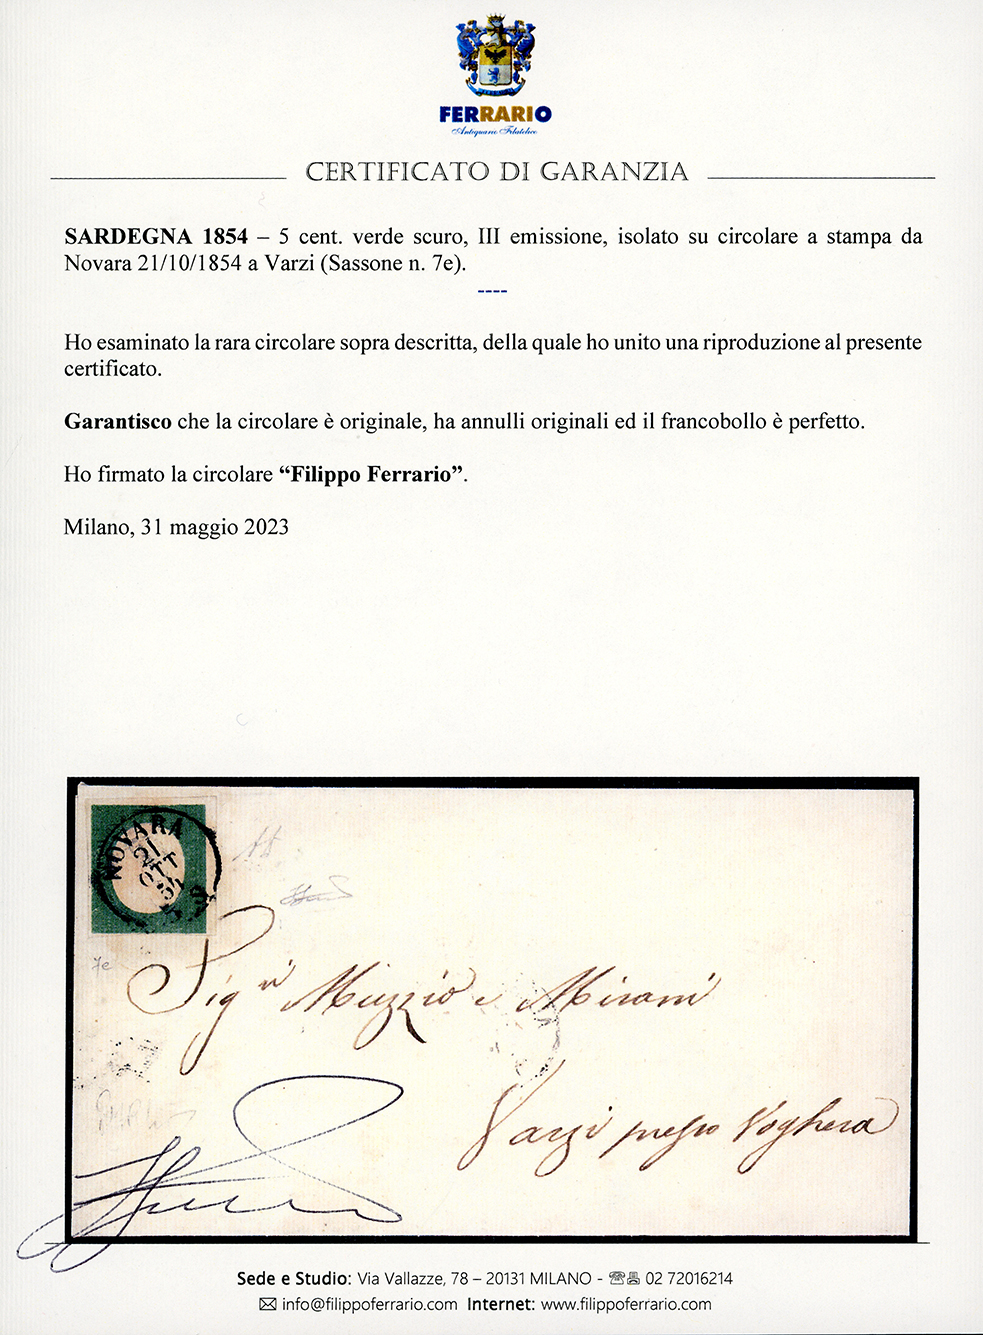 FERRARIO
Antiquario Filatelico
CERTIFICATO DI GARANZIA
SARDEGNA 1854 – 5 cent. verde scuro, III emissione, isolato su circolare a stampa da
Novara 21/10/1854 a Varzi (Sassone n. 7e).
----
Ho esaminato la rara circolare sopra descritta, della quale ho unito una riproduzione al presente
certificato.
Garantisco che la circolare è originale, ha annulli originali ed il francobollo è perfetto.
Ho firmato la circolare “Filippo Ferrario”.
Milano, 31 maggio 2023
NOVARA
21
OTT
54
7e
Sig.ri Muzzio e Mirani
Varzi presso Voghera
Sede e Studio: Via Vallazze, 78 – 20131 MILANO - 02 72016214
info@filippoferrario.com Internet: www.filippoferrario.com